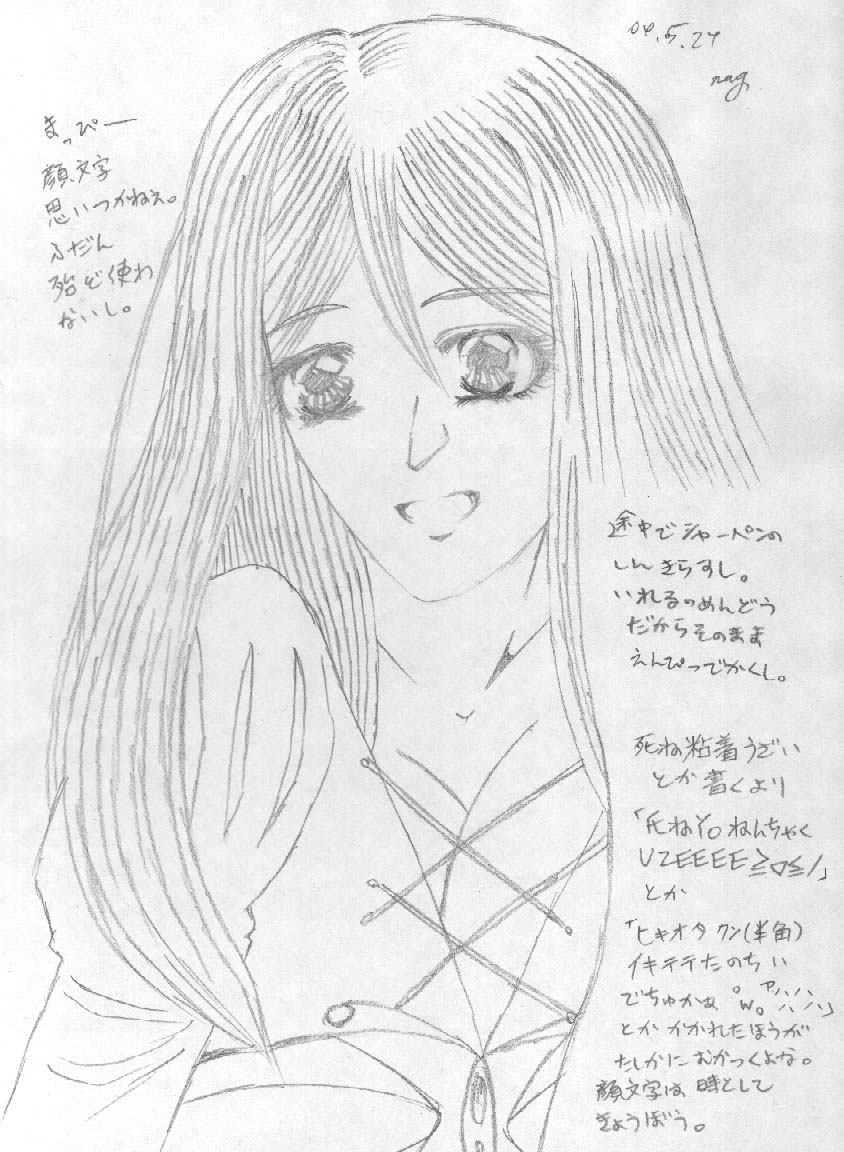 04.5.24
nag
まっぴー
顔文字
思いつかねぇ。
ふだん
殆ど使わ
ないし。
途中でシャーペンの
しんきらすし。
いれるのめんどう
だからそのまま
えんぴつでかくし。
死ね粘着うざい
とか書くより
「氏ねYo ねんちゃく
UZEEEE≧▽≦/」
とか
「ヒキオタ クン(半角)
イキテテたのちい
でちゅかぁ
とか かかれたほうが
たしかにむかつくよな。
顔文字は 時として
きょうぼう。